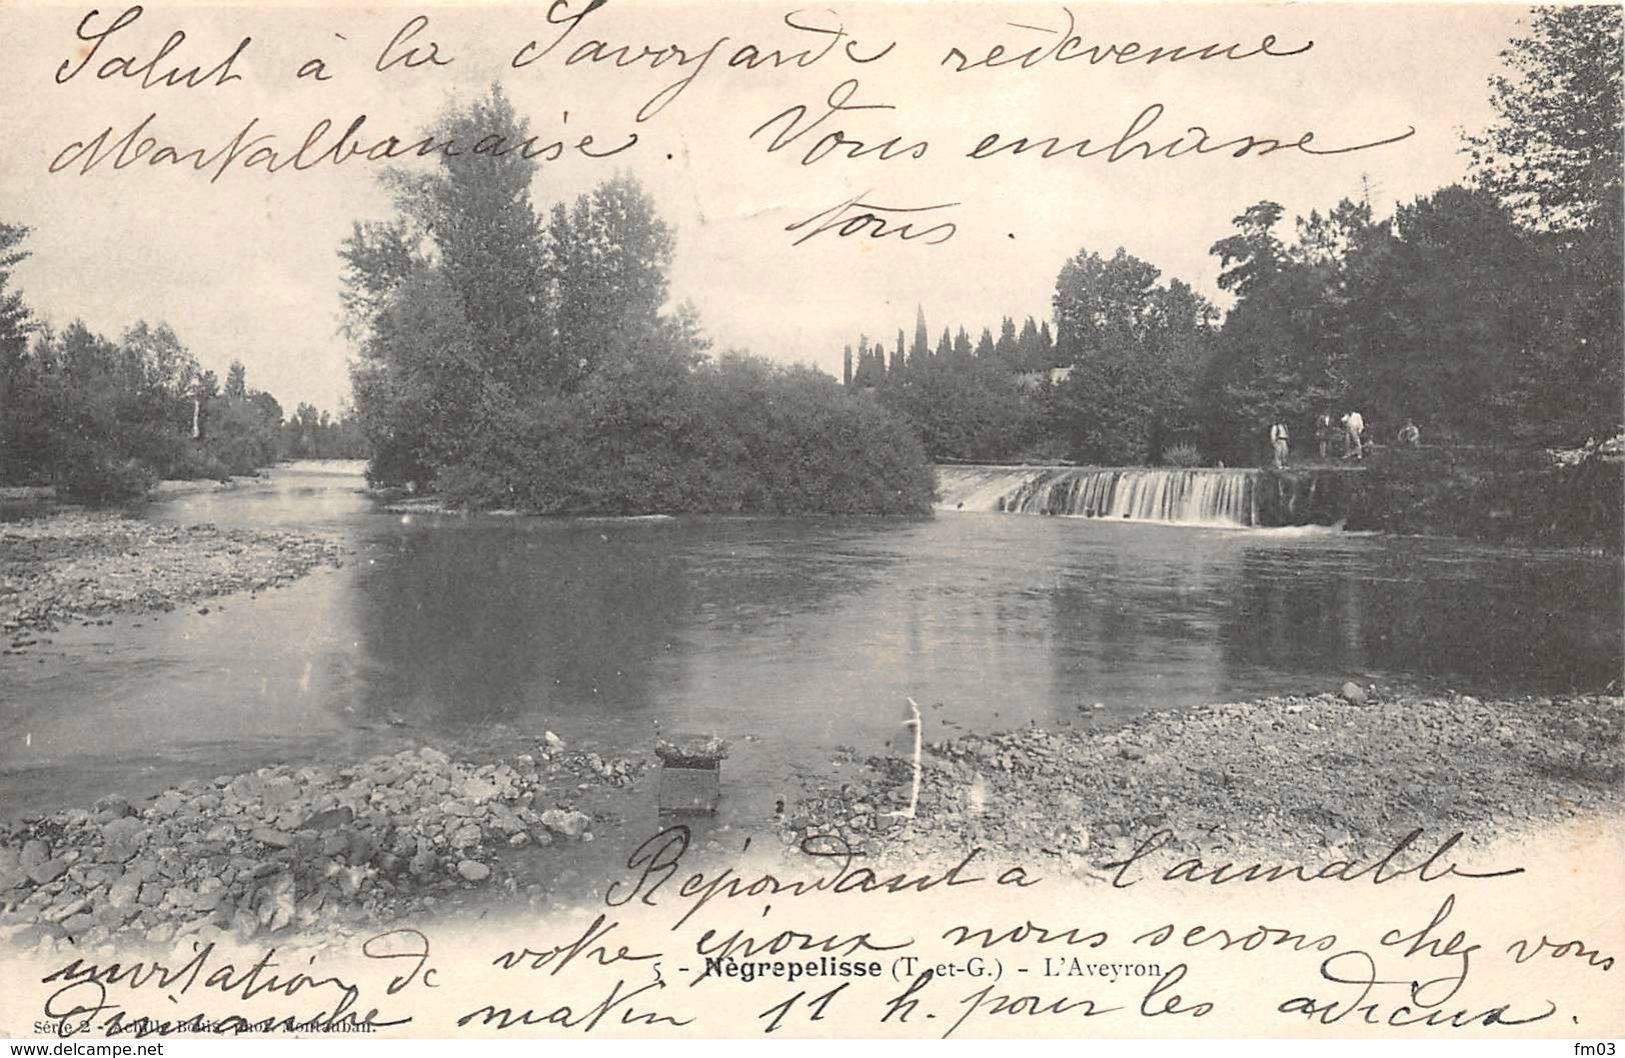 Salut à la Savoyarde redevenue
Montalbanaise. Vous embrasse
tous.
Répondant à l'aimable
invitation de votre époux nous serons chez vous
5 - Nègrepelisse (T.-et-G.) - L'Aveyron.
dimanche matin 11 h. pour les adieux.
Série 2 - Achille Bouis, phot. Montauban.
delcampe.net
fm03